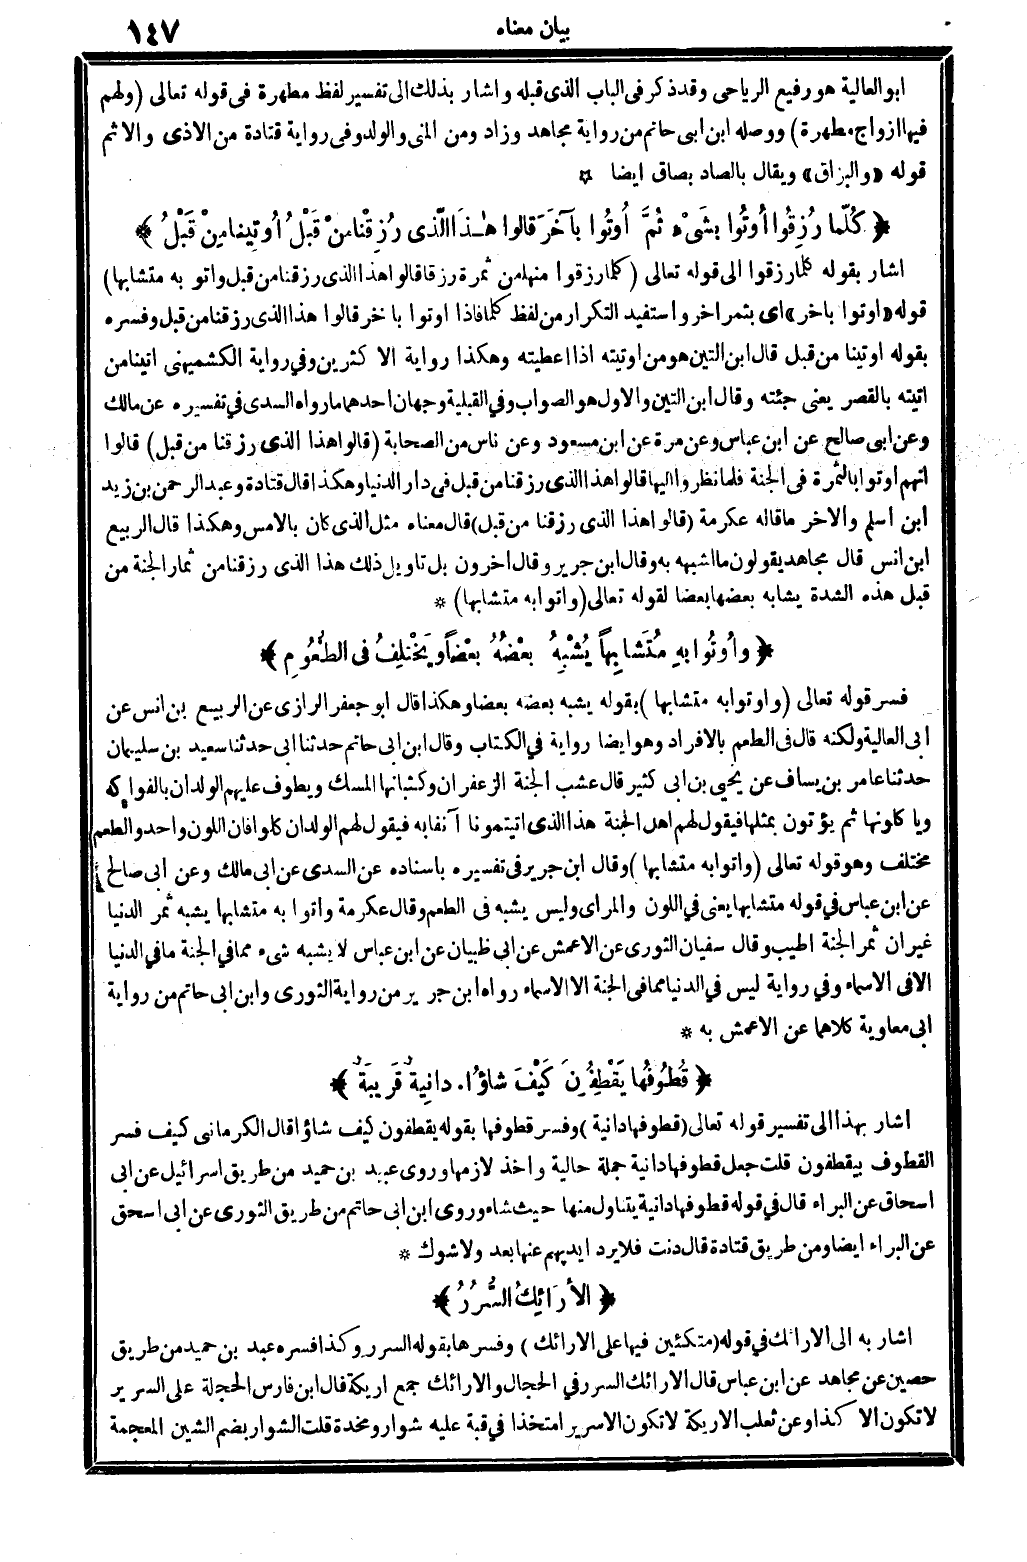 بيان معناه ١٤٧
ابوالعالية هو رفيع الرياحى وقد ذكر فى الباب الذى قبله واشار بذلك الى تفسير لفظ مطهرة فى قوله تعالى (ولهم
فيها ازواج مطهرة) ووصله ابن ابى حاتم من رواية مجاهد وزاد ومن المنى والولد وفى رواية قتادة من الاذى والاثم
قوله «والبزاق» ويقال بالصاد بصاق ايضا *
﴿ كُلَّما رُزِقُوا أُوتُوا بِشَىْء ثُمَّ أُوتُوا بآخَرَ قالوا هٰذَا الَّذى رُزِقْنا مِنْ قَبْلُ أُوتِينا مِنْ قَبْلُ ﴾
اشار بقوله كلما رزقوا الى قوله تعالى (كلما رزقوا منها من ثمرة رزقا قالوا هذا الذى رزقنا من قبل واتو به متشابها)
قوله «اوتوا باخر» اى بثمر اخر واستفيد التكرار من لفظ كلما فاذا اوتوا باخر قالوا هذا الذى رزقنا من قبل وفسره
بقوله اوتينا من قبل قال ابن التين هو من اوتيته اذا اعطيته وهكذا رواية الاكثرين وفي رواية الكشميهنى اتينا من
اتيته بالقصر يعنى جئته وقال ابن التين والاول هو الصواب وفي القبلية وجهان احدهما مارواه السدى في تفسيره عن مالك
وعن ابى صالح عن ابن عباس وعن مرة عن ابن مسعود وعن ناس من الصحابة (قالوا هذا الذى رزقنا من قبل) قالوا
انهم اوتوا بالثمرة فى الجنة فلما نظروا اليها قالوا هذا الذى رزقنا من قبل فى دار الدنيا وهكذا قال قتادة وعبد الرحمن بن زيد
ابن اسلم والاخر ماقاله عكرمة (قالوا هذا الذى رزقنا من قبل) قال معناه مثل الذى كان بالامس وهكذا قال الربيع
ابن انس قال مجاهد يقولون ما اشبهه به وقال ابن جرير وقال اخرون بل تاويل ذلك هذا الذى رزقنا من ثمار الجنة من
قبل هذه الشدة يشابه بعضها بعضا لقوله تعالى (واتوا به متشابها) *
﴿ وأُوتُوا بهِ مُتَشابِهاً يُشْبِهُ بعْضُهُ بعْضاً ويَخْتَلِفُ فى الطُّعُومِ ﴾
فسر قوله تعالى (واوتوا به متشابها) بقوله يشبه بعضه بعضا وهكذا قال ابو جعفر الرازى عن الربيع بن انس عن
ابى العالية ولكنه قال فى الطعم بالافراد وهو ايضا رواية في الكتاب وقال ابن ابى حاتم حدثنا ابى حدثنا سعيد بن سليمان
حدثنا عامر بن يساف عن يحيى بن ابى كثير قال عشب الجنة الزعفران وكثبانها المسك ويطوف عليهم الولدان بالفواكه
وياكلونها ثم يؤتون بمثلها فيقول لهم اهل الجنة هذا الذى اتيتمونا آنفا به فيقول لهم الولدان كلوا فان اللون واحد والطعم
مختلف وهو قوله تعالى (واتوا به متشابها) وقال ابن جرير فى تفسيره باسناده عن السدى عن ابى مالك وعن ابى صالح
عن ابن عباس في قوله متشابها يعنى في اللون والمراى وليس يشبه فى الطعم وقال عكرمة واتوا به متشابها يشبه ثمر الدنيا
غير ان ثمر الجنة اطيب وقال سفيان الثورى عن الاعمش عن ابى ظبيان عن ابن عباس لايشبه شىء مما في الجنة ما في الدنيا
الا فى الاسماء وفي رواية ليس في الدنيا مما فى الجنة الا الاسماء رواه ابن جرير من رواية الثورى وابن ابى حاتم من رواية
ابى معاوية كلاهما عن الاعمش به *
﴿ قُطُوفُها يَقْطِفُونَ كَيْفَ شاؤُا. دانِيةٌ قَرِيبَةٌ ﴾
اشار بهذا الى تفسير قوله تعالى (قطوفها دانية) وفسر قطوفها بقوله يقطفون كيف شاؤا قال الكرمانى كيف فسر
القطوف بيقطفون قلت جعل قطوفها دانية جملة حالية واخذ لازمها وروى عبد بن حميد من طريق اسرائيل عن ابى
اسحاق عن البراء قال في قوله قطوفها دانية يتناول منها حيث شاء وروى ابن ابى حاتم من طريق الثورى عن ابى اسحق
عن البراء ايضا ومن طريق قتادة قال دنت فلا يرد ايديهم عنها بعد ولا شوك *
﴿ الأَرَائِكُ السُّرُرُ ﴾
اشار به الى الارائك في قوله (متكئين فيها على الارائك) وفسرها بقوله السرر وكذا فسره عبد بن حميد من طريق
حصين عن مجاهد عن ابن عباس قال الارائك السرر في الحجال والارائك جمع اريكة قال ابن فارس الحجلة على السرير
لا تكون الا كذا وعن ثعلب الاريكة لا تكون الا سريرا متخذا في قبة عليه شوار ومخدة قلت الشوار بضم الشين المعجمة